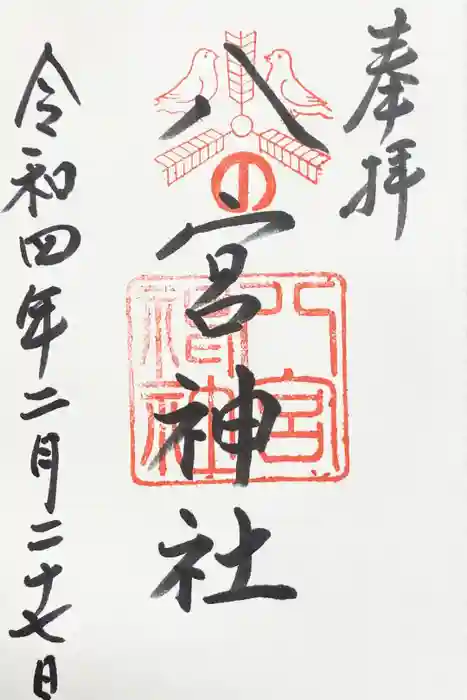 奉拝
八宮神社
八宮神社
令和四年二月二十七日